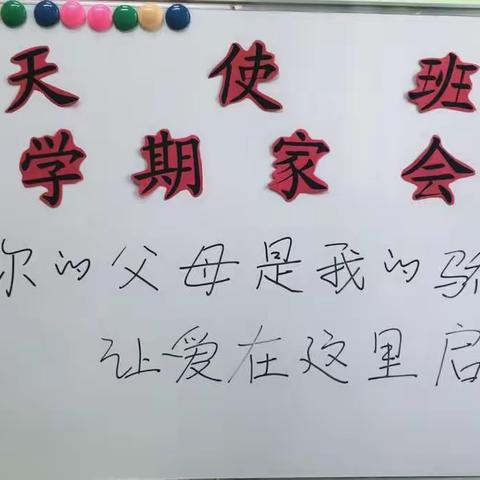 天使班
学期家会
你的父母是我的骄
让爱在这里启